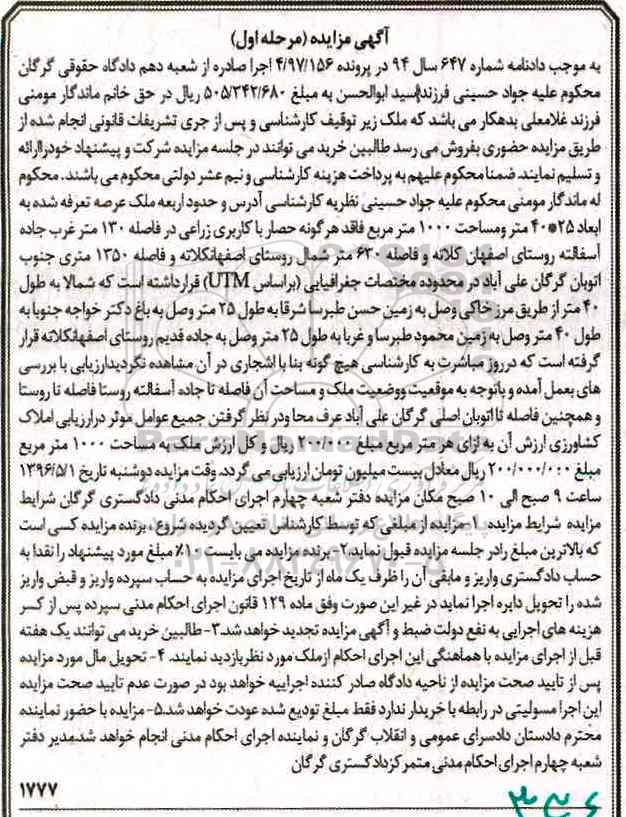 آگهی مزایده (مرحله اول)
به موجب دادنامه شماره ۶۴۷ سال ۹۴ در پرونده ۴/۹۷/۱۵۶ اجرا صادره از شعبه دهم دادگاه حقوقی گرگان
محکوم علیه جواد حسینی فرزند سید ابوالحسن به مبلغ ۵۰۵/۳۴۲/۶۸۰ ریال در حق خانم ماندگار مومنی
فرزند غلامعلی بدهکار می باشد که ملک زیر توقیف کارشناسی و پس از جری تشریفات قانونی انجام شده از
طریق مزایده حضوری بفروش می رسد طالبین خرید می توانند در جلسه مزایده شرکت و پیشنهاد خودراارائه
و تسلیم نمایند. ضمنا محکوم علیهم به پرداخت هزینه کارشناسی و نیم عشر دولتی محکوم می باشند. محکوم
له ماندگار مومنی محکوم علیه جواد حسینی نظریه کارشناسی آدرس و حدود اربعه ملک عرصه تعرفه شده به
ابعاد ۲۵*۴۰ متر ومساحت ۱۰۰۰ متر مربع فاقد هرگونه حصار با کاربری زراعی در فاصله ۱۳۰ متر غرب جاده
آسفالته روستای اصفهان کلاته و فاصله ۶۳۰ متر شمال روستای اصفهانکلاته و فاصله ۱۳۵۰ متری جنوب
اتوبان گرگان علی آباد در محدوده مختصات جغرافیایی (براساس UTM) قرارداشته است که شمالا به طول
۴۰ متر از طریق مرز خاکی وصل به زمین حسن طبرسا شرقا به طول ۲۵ متر وصل به باغ دکتر خواجه جنوبا به
طول ۴۰ متر وصل به زمین محمود طبرسا و غربا به طول ۲۵ متر وصل به جاده قدیم روستای اصفهانکلاته قرار
گرفته است که درروز مباشرت به کارشناسی هیچ گونه بنا یا اشجاری در آن مشاهده نگردیدارزیابی با بررسی
های بعمل آمده و باتوجه به موقعیت ووضعیت ملک و مساحت آن فاصله تا جاده آسفالته روستا فاصله تا روستا
و همچنین فاصله تا اتوبان اصلی گرگان علی آباد عرف محا ودر نظر گرفتن جمیع عوامل موثر درارزیابی املاک
کشاورزی ارزش آن به ازای هر متر مربع مبلغ ۲۰۰/۰۰۰ ریال و کل ارزش ملک به مساحت ۱۰۰۰ متر مربع
مبلغ ۲۰۰/۰۰۰/۰۰۰ ریال معادل بیست میلیون تومان ارزیابی می گردد. وقت مزایده دوشنبه تاریخ ۱۳۹۶/۵/۱
ساعت ۹ صبح الی ۱۰ صبح مکان مزایده دفتر شعبه چهارم اجرای احکام مدنی دادگستری گرگان شرایط
مزایده شرایط مزایده ۱_ مزایده از مبلغی که توسط کارشناس تعیین گردیده شروع، برنده مزایده کسی است
که بالاترین مبلغ رادر جلسه مزایده قبول نماید.۲- برنده مزایده می بایست ۱۰٪ مبلغ مورد پیشنهاد را نقدا به
حساب دادگستری واریز و مابقی آن را ظرف یک ماه از تاریخ اجرای مزایده به حساب سپرده واریز و قبض واریز
شده را تحویل دایره اجرا نماید در غیر این صورت وفق ماده ۱۲۹ قانون اجرای احکام مدنی سپرده پس از کسر
هزینه های اجرایی به نفع دولت ضبط و آگهی مزایده تجدید خواهد شد.۳-طالبین خرید می توانند یک هفته
قبل از اجرای مزایده با هماهنگی این اجرای احکام ازملک مورد نظربازدید نمایند. ۴- تحویل مال مورد مزایده
پس از تایید صحت مزایده از ناحیه دادگاه صادر کننده اجراییه خواهد بود در صورت عدم تایید صحت مزایده
این اجرا مسولیتی در رابطه با خریدار ندارد فقط مبلغ تودیع شده عودت خواهد شد.۵-مزایده با حضور نماینده
محترم دادستان دادسرای عمومی و انقلاب گرگان و نماینده اجرای احکام مدنی انجام خواهد شد.مدیر دفتر
شعبه چهارم اجرای احکام مدنی متمرکز دادگستری گرگان
۱۷۷۷